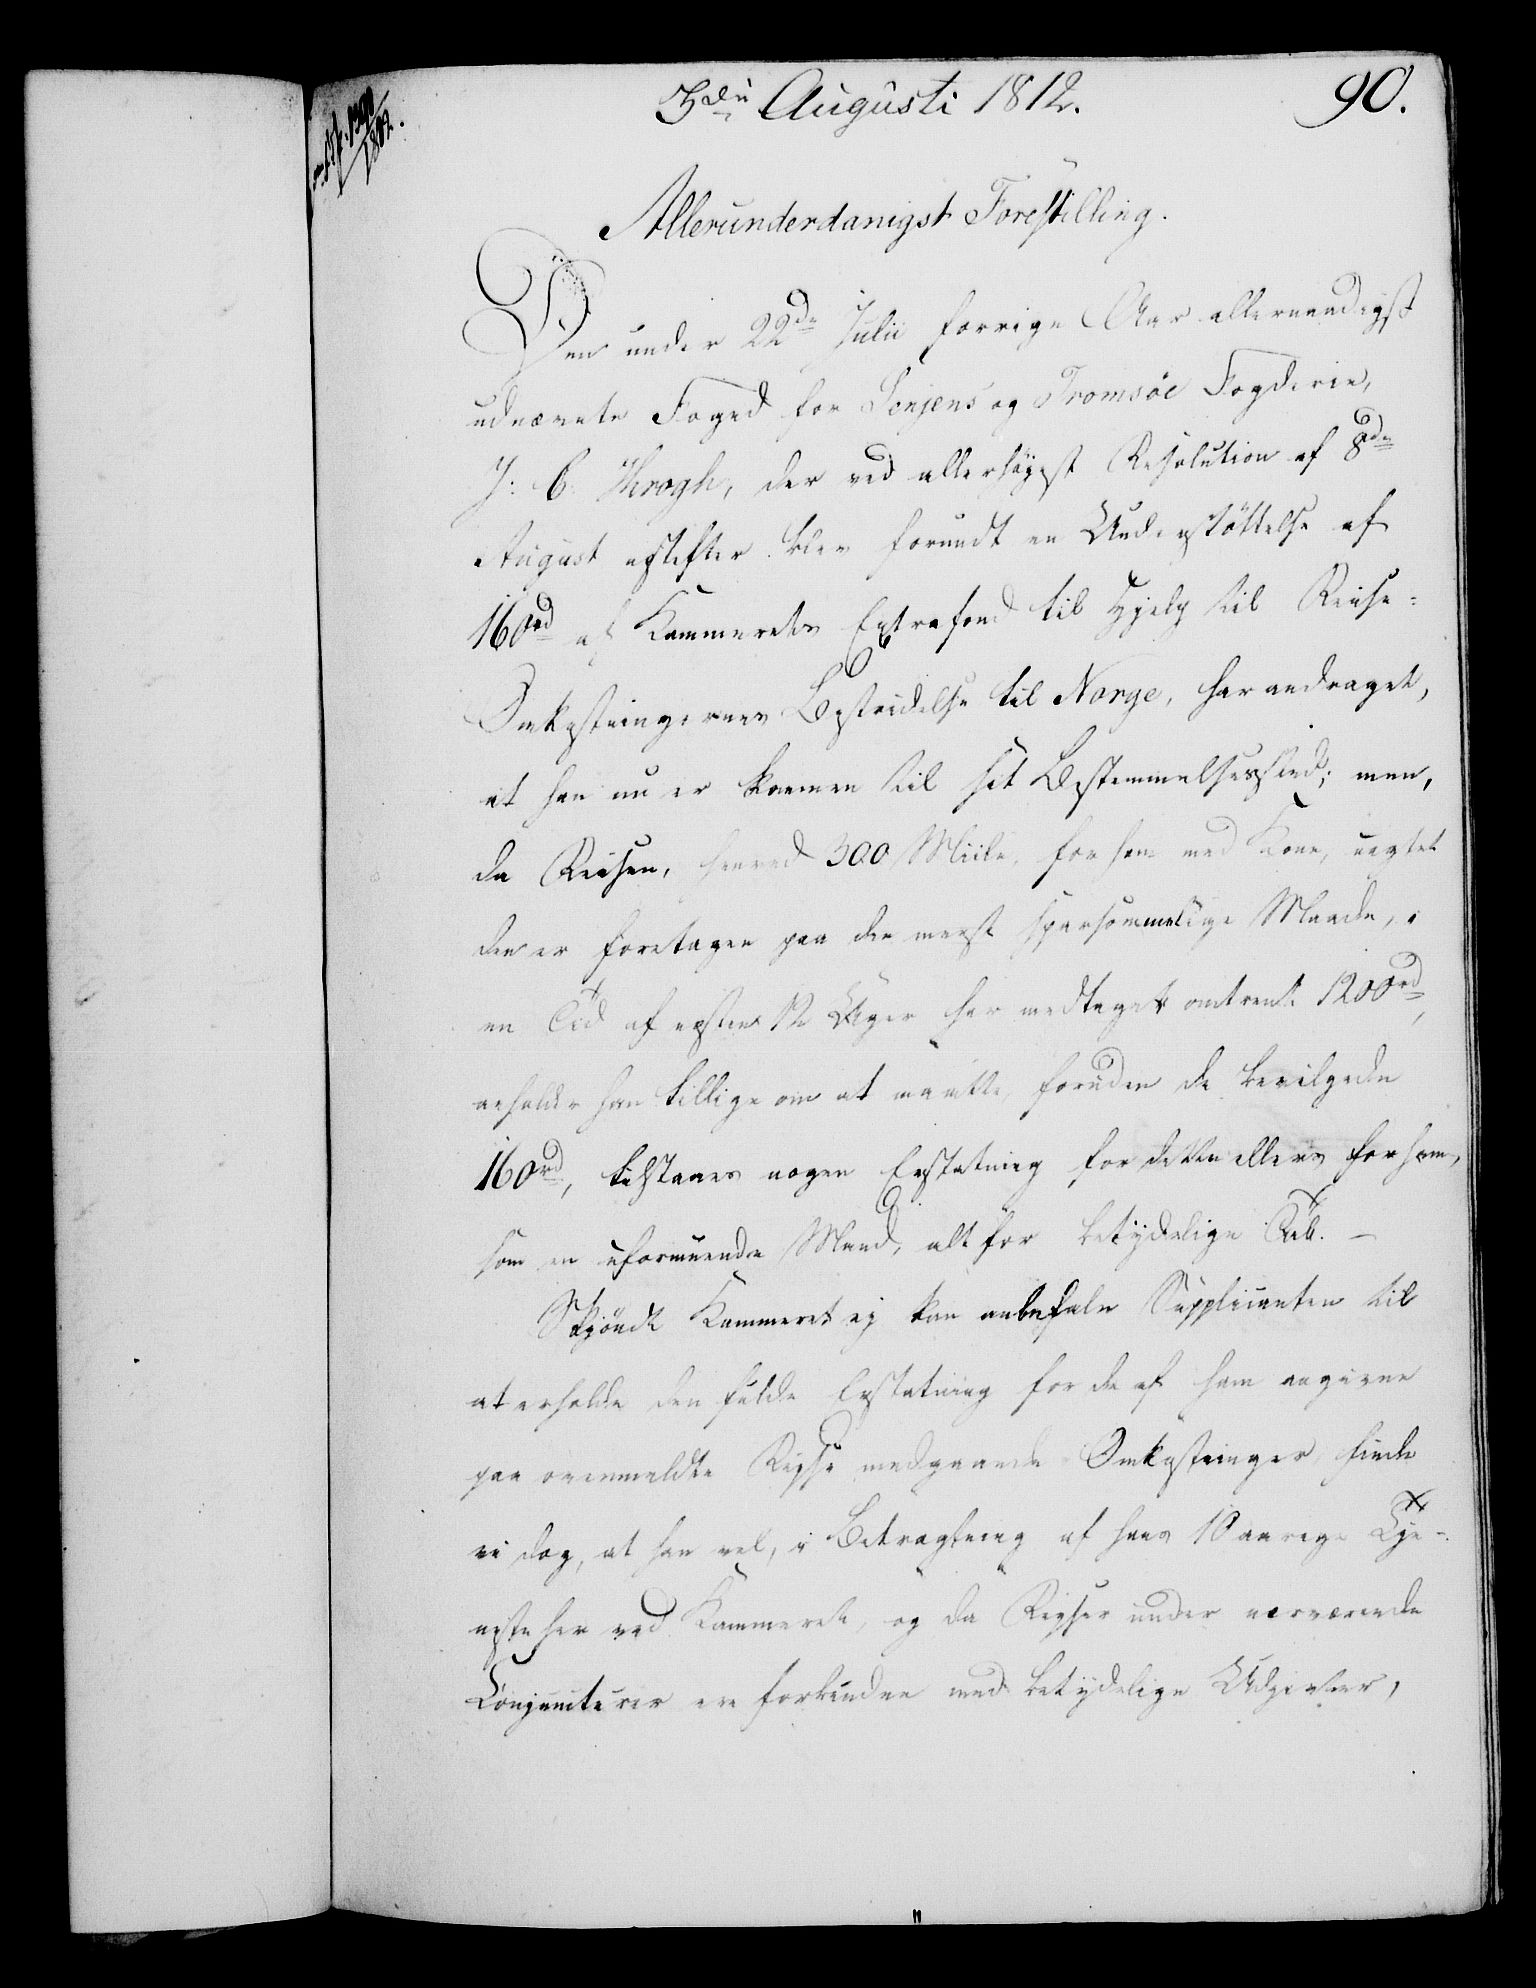 3die Augusti 1812.
90.
Allerunderdanigst Forestilling.
Den under 22de Julii forrige Aar allernaadigst
udnævnte Foged for Senjens og Tromsöe Fogderie,
J: C. Krogh, der ved allerhöyest Resolution af 8de
August næstefter blev forundt en Understöttelse af
160rd af Kammerets Extrafond til Hjelp til Reise-
Omkostningernes Bestridelse til Norge, har andraget,
at han nu er kommen til sit Bestemmelsessted; men,
da Reisen, henved 300 Miile, for ham med Kone, uagtet
den er foretagen paa den meest sparsommelige Maade, i
en Tid af næsten 12 Uger har medtaget omtrent 1200rd,
anholder han tillige om at maatte, foruden de bevilgede
160rd, tilstaaes nogen Erstatning for dette ellers for ham,
som en uformuende Mand, alt for betydelige Tab. —
Skjöndt Kammeret ej kan anbefale Supplicanten til
at erholde den fulde Erstatning for de af ham angivne
paa ovenmeldte Reyse medgaaede Omkostninger, finde
vi dog, at han vel, i Betragtning af hans 10 aarige Tje-
niste her ved Kammeret, og da Reyser under nærværende
Conjuncturer ere forbundne med betydelige Udgivter,